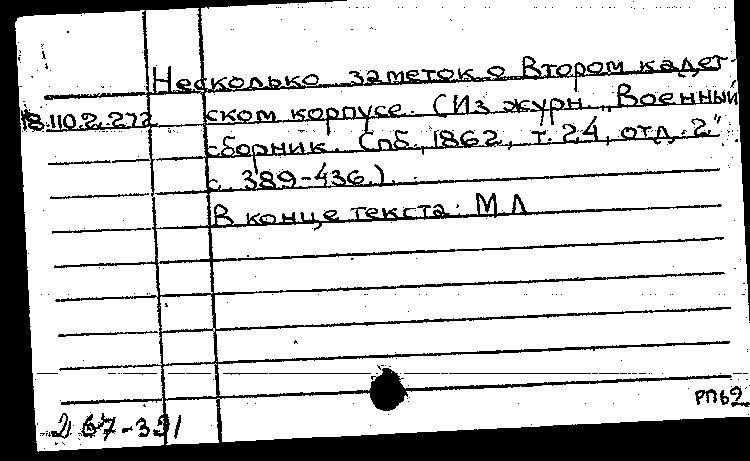 Несколько заметок о Втором кадет-
18.110.2.272 ском корпусе. (Из журн. „Военный
сборник. Спб., 1862, т. 24, отд. 2"
с. 389-436.).
В конце текста: М Л
267-391
РПб2